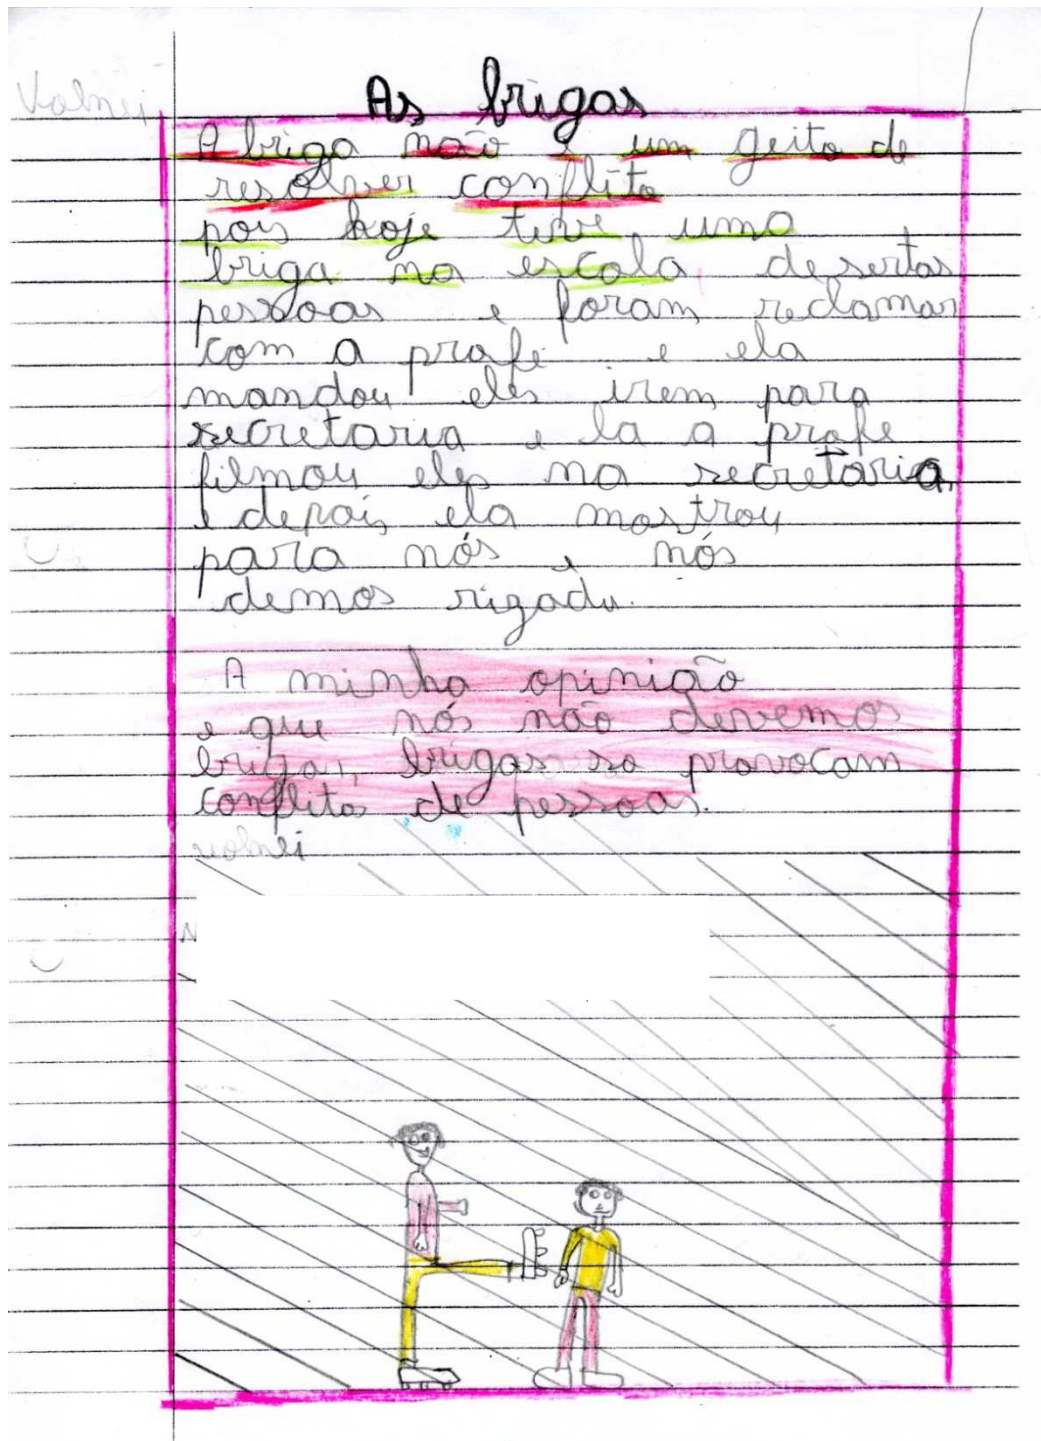 Volnei
As brigas
A briga não e um geito de
resolver conflito
pois hoje teve uma
briga na escola desertas
pessoas e foram reclamar
com a profe e ela
mandou eles irem para
secretaria e la a profe
filmou eles na secretaria
e depois ela mostrou
para nós e nós
demos rizada.
A minha opinião
e que nós não devemos
brigar, brigas so provocam
conflitos de pessoas.
volnei